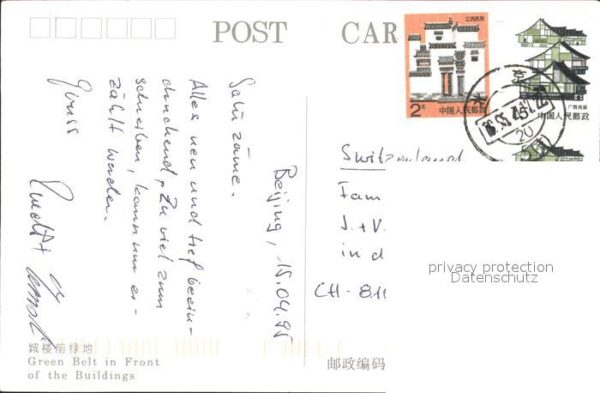 POST CAR
Beijing, 15.04.95
Salü zäme.
Alles neu und tief beein-
druckend, zu viel zum
schreiben, kann nur er-
zählt werden.
Switzerland
Fam
J.+V.
in d
CH-811
privacy protection
Datenschutz
江西民居
2元
中国人民邮政
广西民居
中国人民邮政
20
邮政编码
Green Belt in Front
of the Buildings